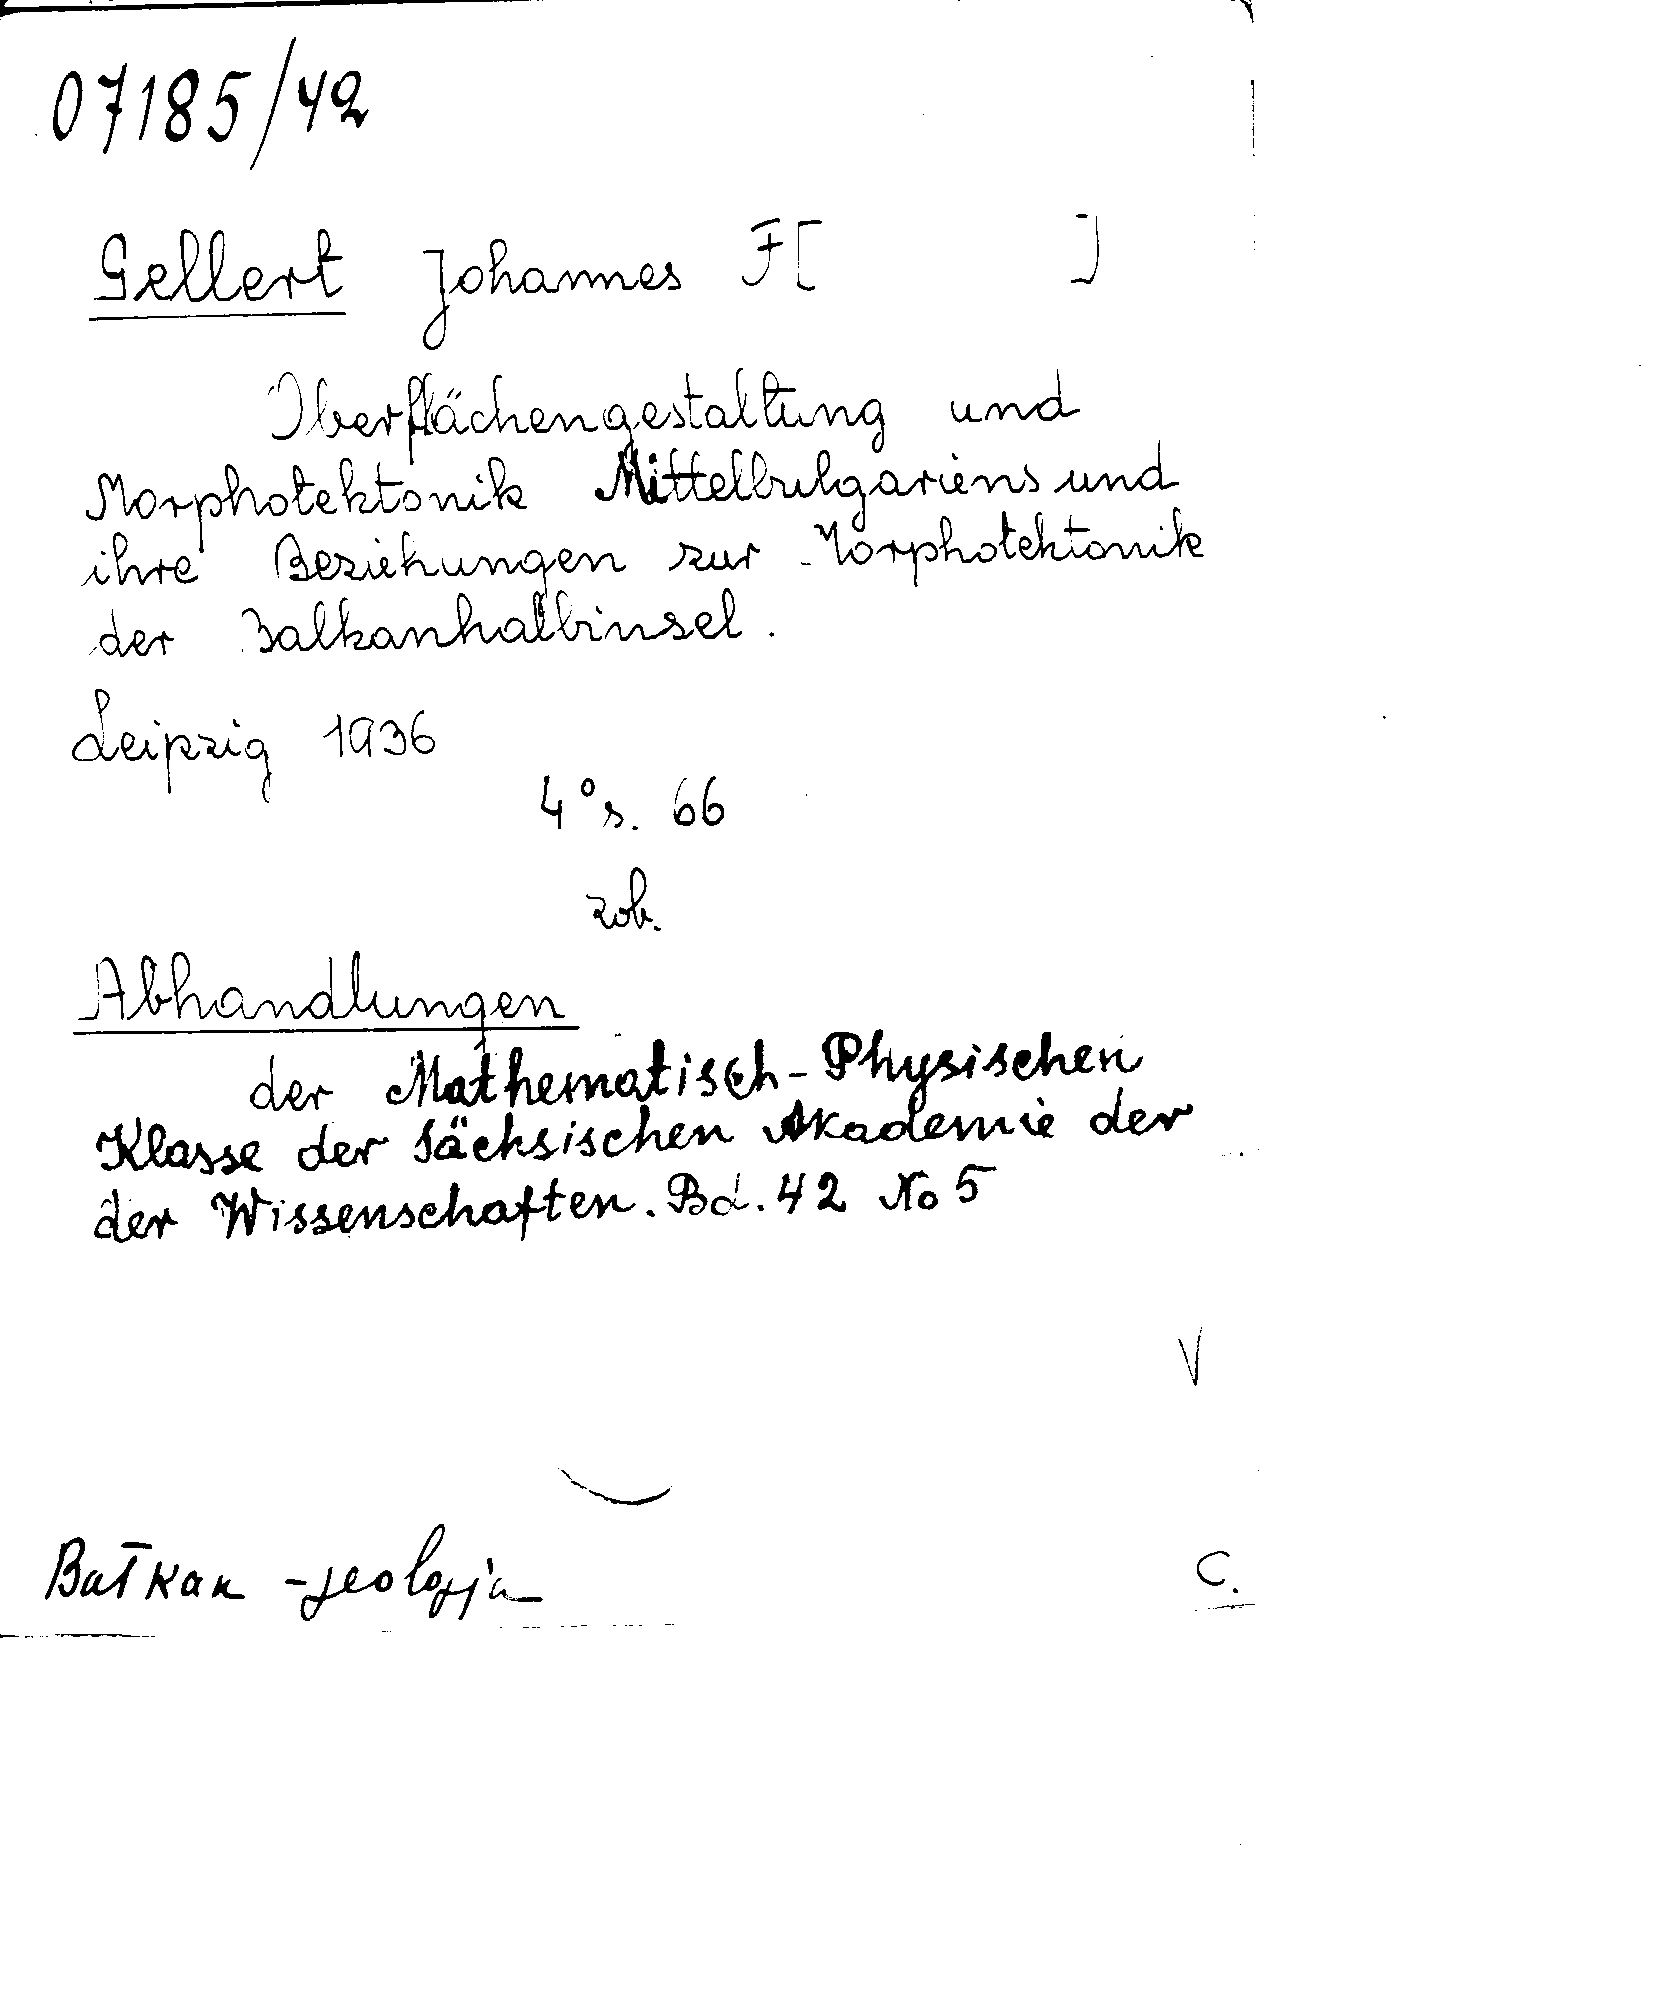 07185/42
Gellert Johannes F[ ]
Oberflächengestaltung und
Morphotektonik Mittelbulgariens und
ihre Beziehungen zur Morphotektonik
der Balkanhalbinsel.
Leipzig 1936
4° s. 66
zob.
Abhandlungen
der Mathematisch-Physischen
Klasse der Sächsischen Akademie der
der Wissenschaften. Bd. 42 No 5
V
Bałkan - geologja
C.